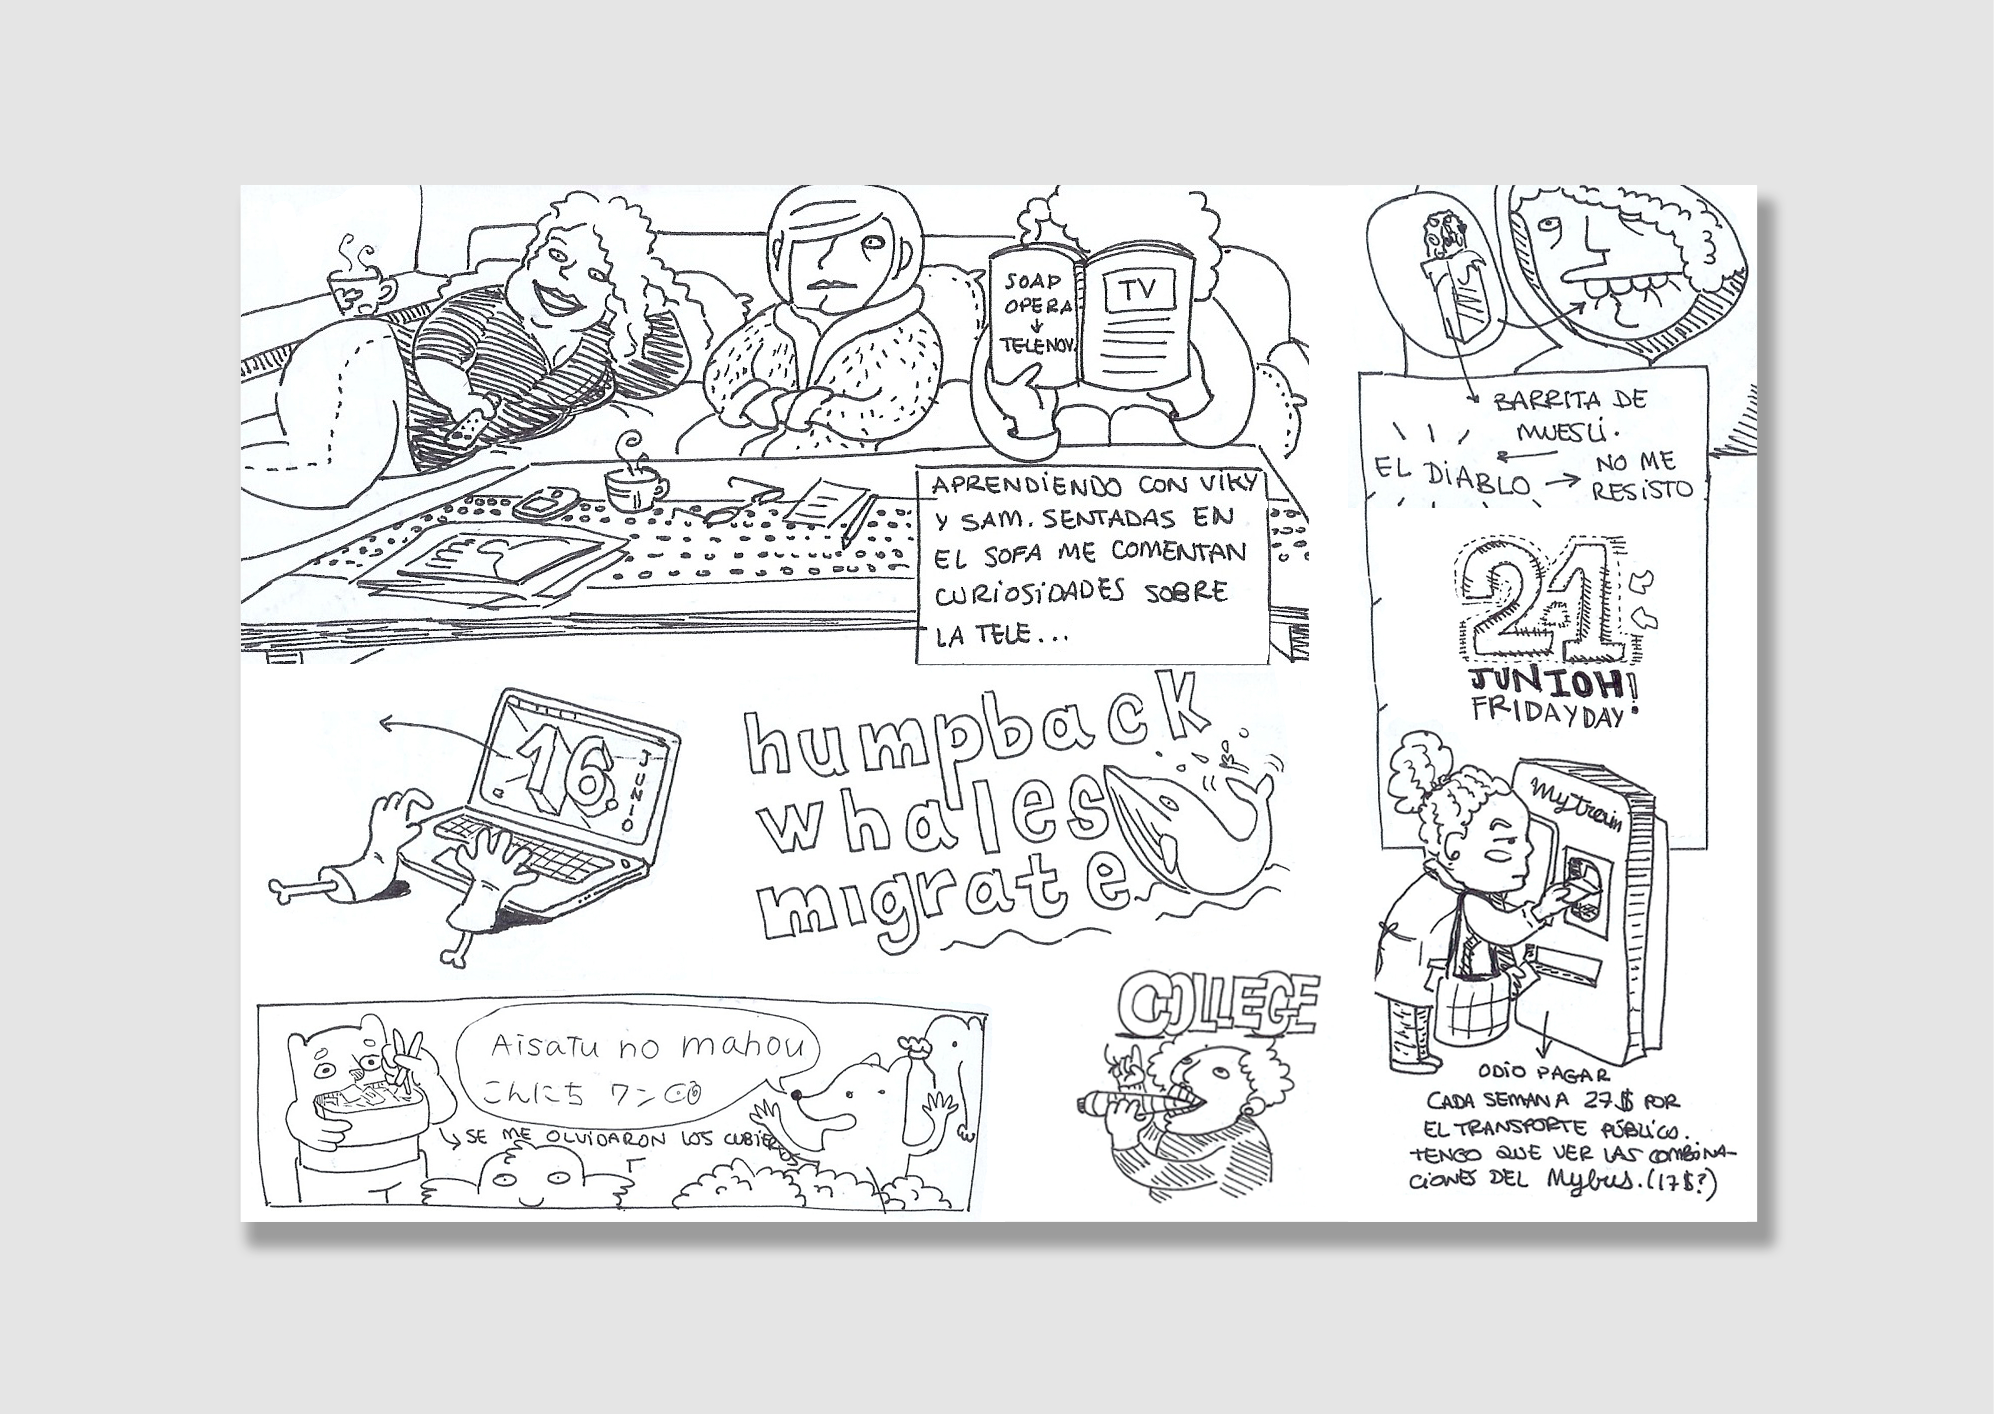 SOAP
OPERA
↓
TELENOV.
TV
APRENDIENDO CON VIKY
Y SAM. SENTADAS EN
EL SOFA ME COMENTAN
CURIOSIDADES SOBRE
LA TELE...
BARRITA DE
MUESLI.
EL DIABLO → NO ME
RESISTO
21
JUNIOH!
FRIDAYDAY
16
JUNIO
humpback
whales
migrate
My train
ODIO PAGAR
CADA SEMANA 27$ POR
EL TRANSPORTE PÚBLICO.
TENGO QUE VER LAS COMBINA-
CIONES DEL Mybus. (17$?)
COLLEGE
Aisatu no mahou
こんにち ワン
SE ME OLVIDARON LOS